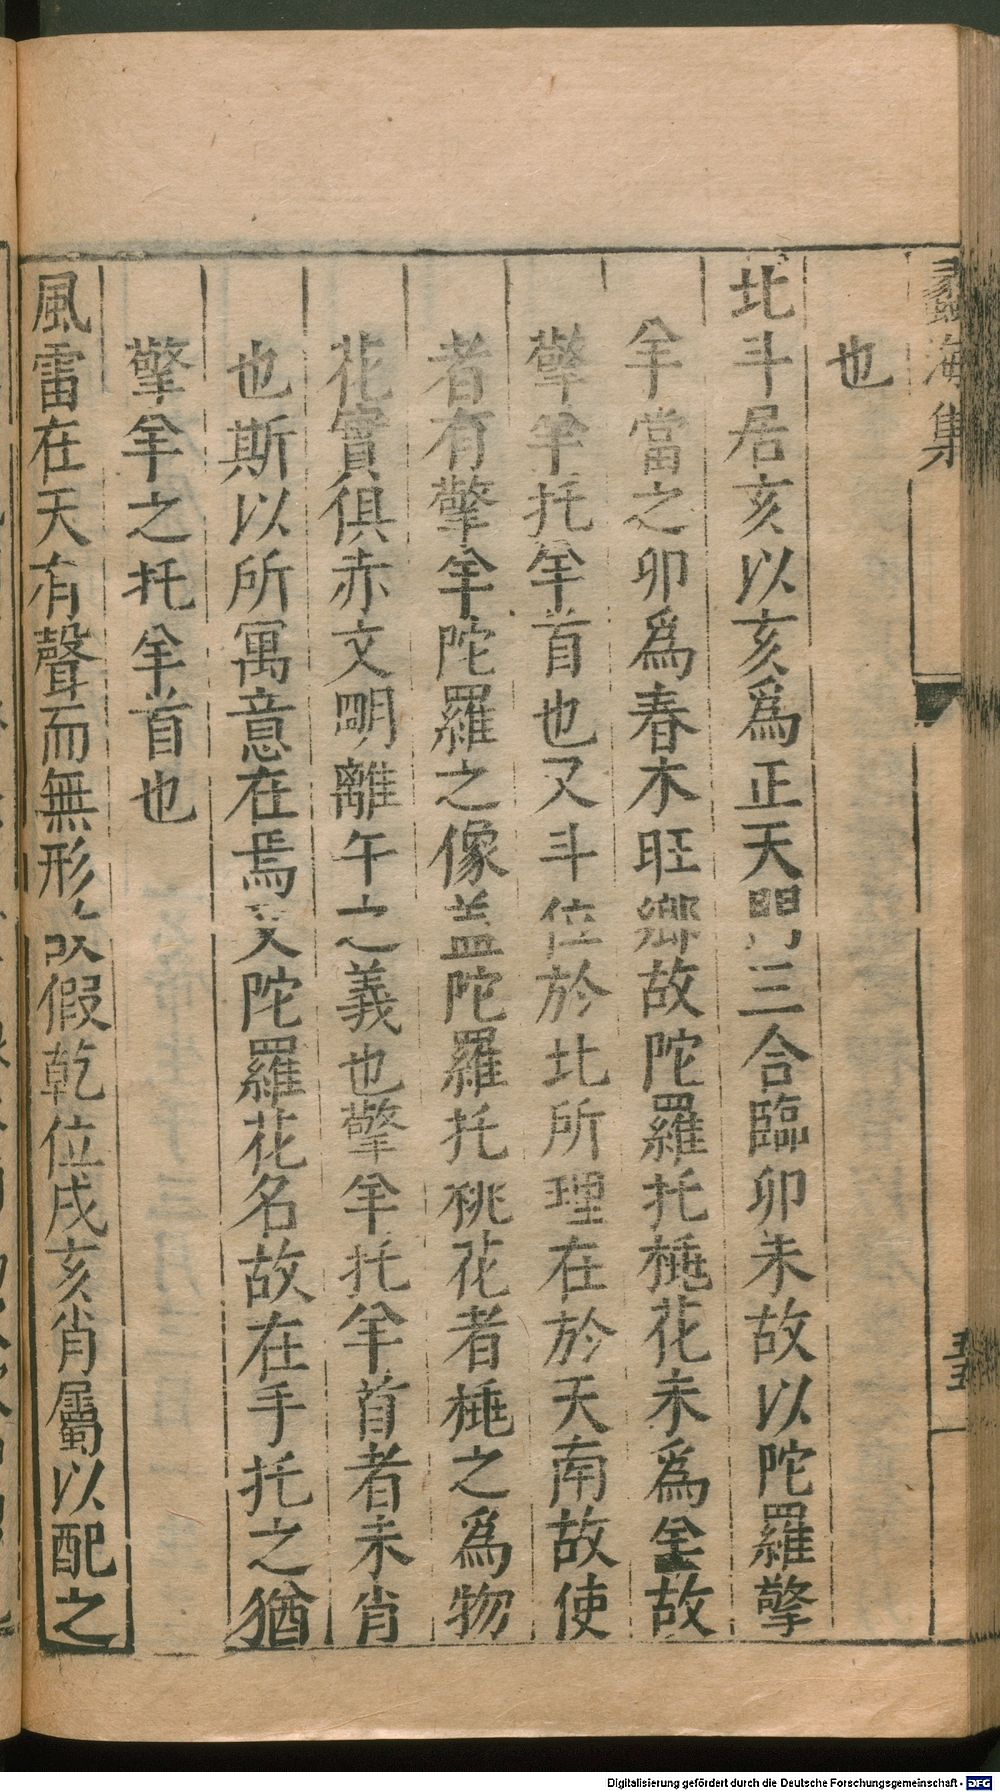 蠡海集
五十五
也
北斗居亥以亥爲正天門三合臨卯未故以陀羅擎
羊當之卯爲春木旺鄉故陀羅托桃花未爲羊故
擎羊托羊首也又斗位於北所理在於天南故使
者有擎羊陀羅之像盖陀羅托桃花者桃之爲物
花實俱赤文明離午之義也擎羊托羊首者未肖
也斯以所寓意在焉又陀羅花名故在手托之猶
擎羊之托羊首也
風雷在天有聲而無形故假乾位戌亥肖屬以配之
Digitalisierung gefördert durch die Deutsche Forschungsgemeinschaft - DFG